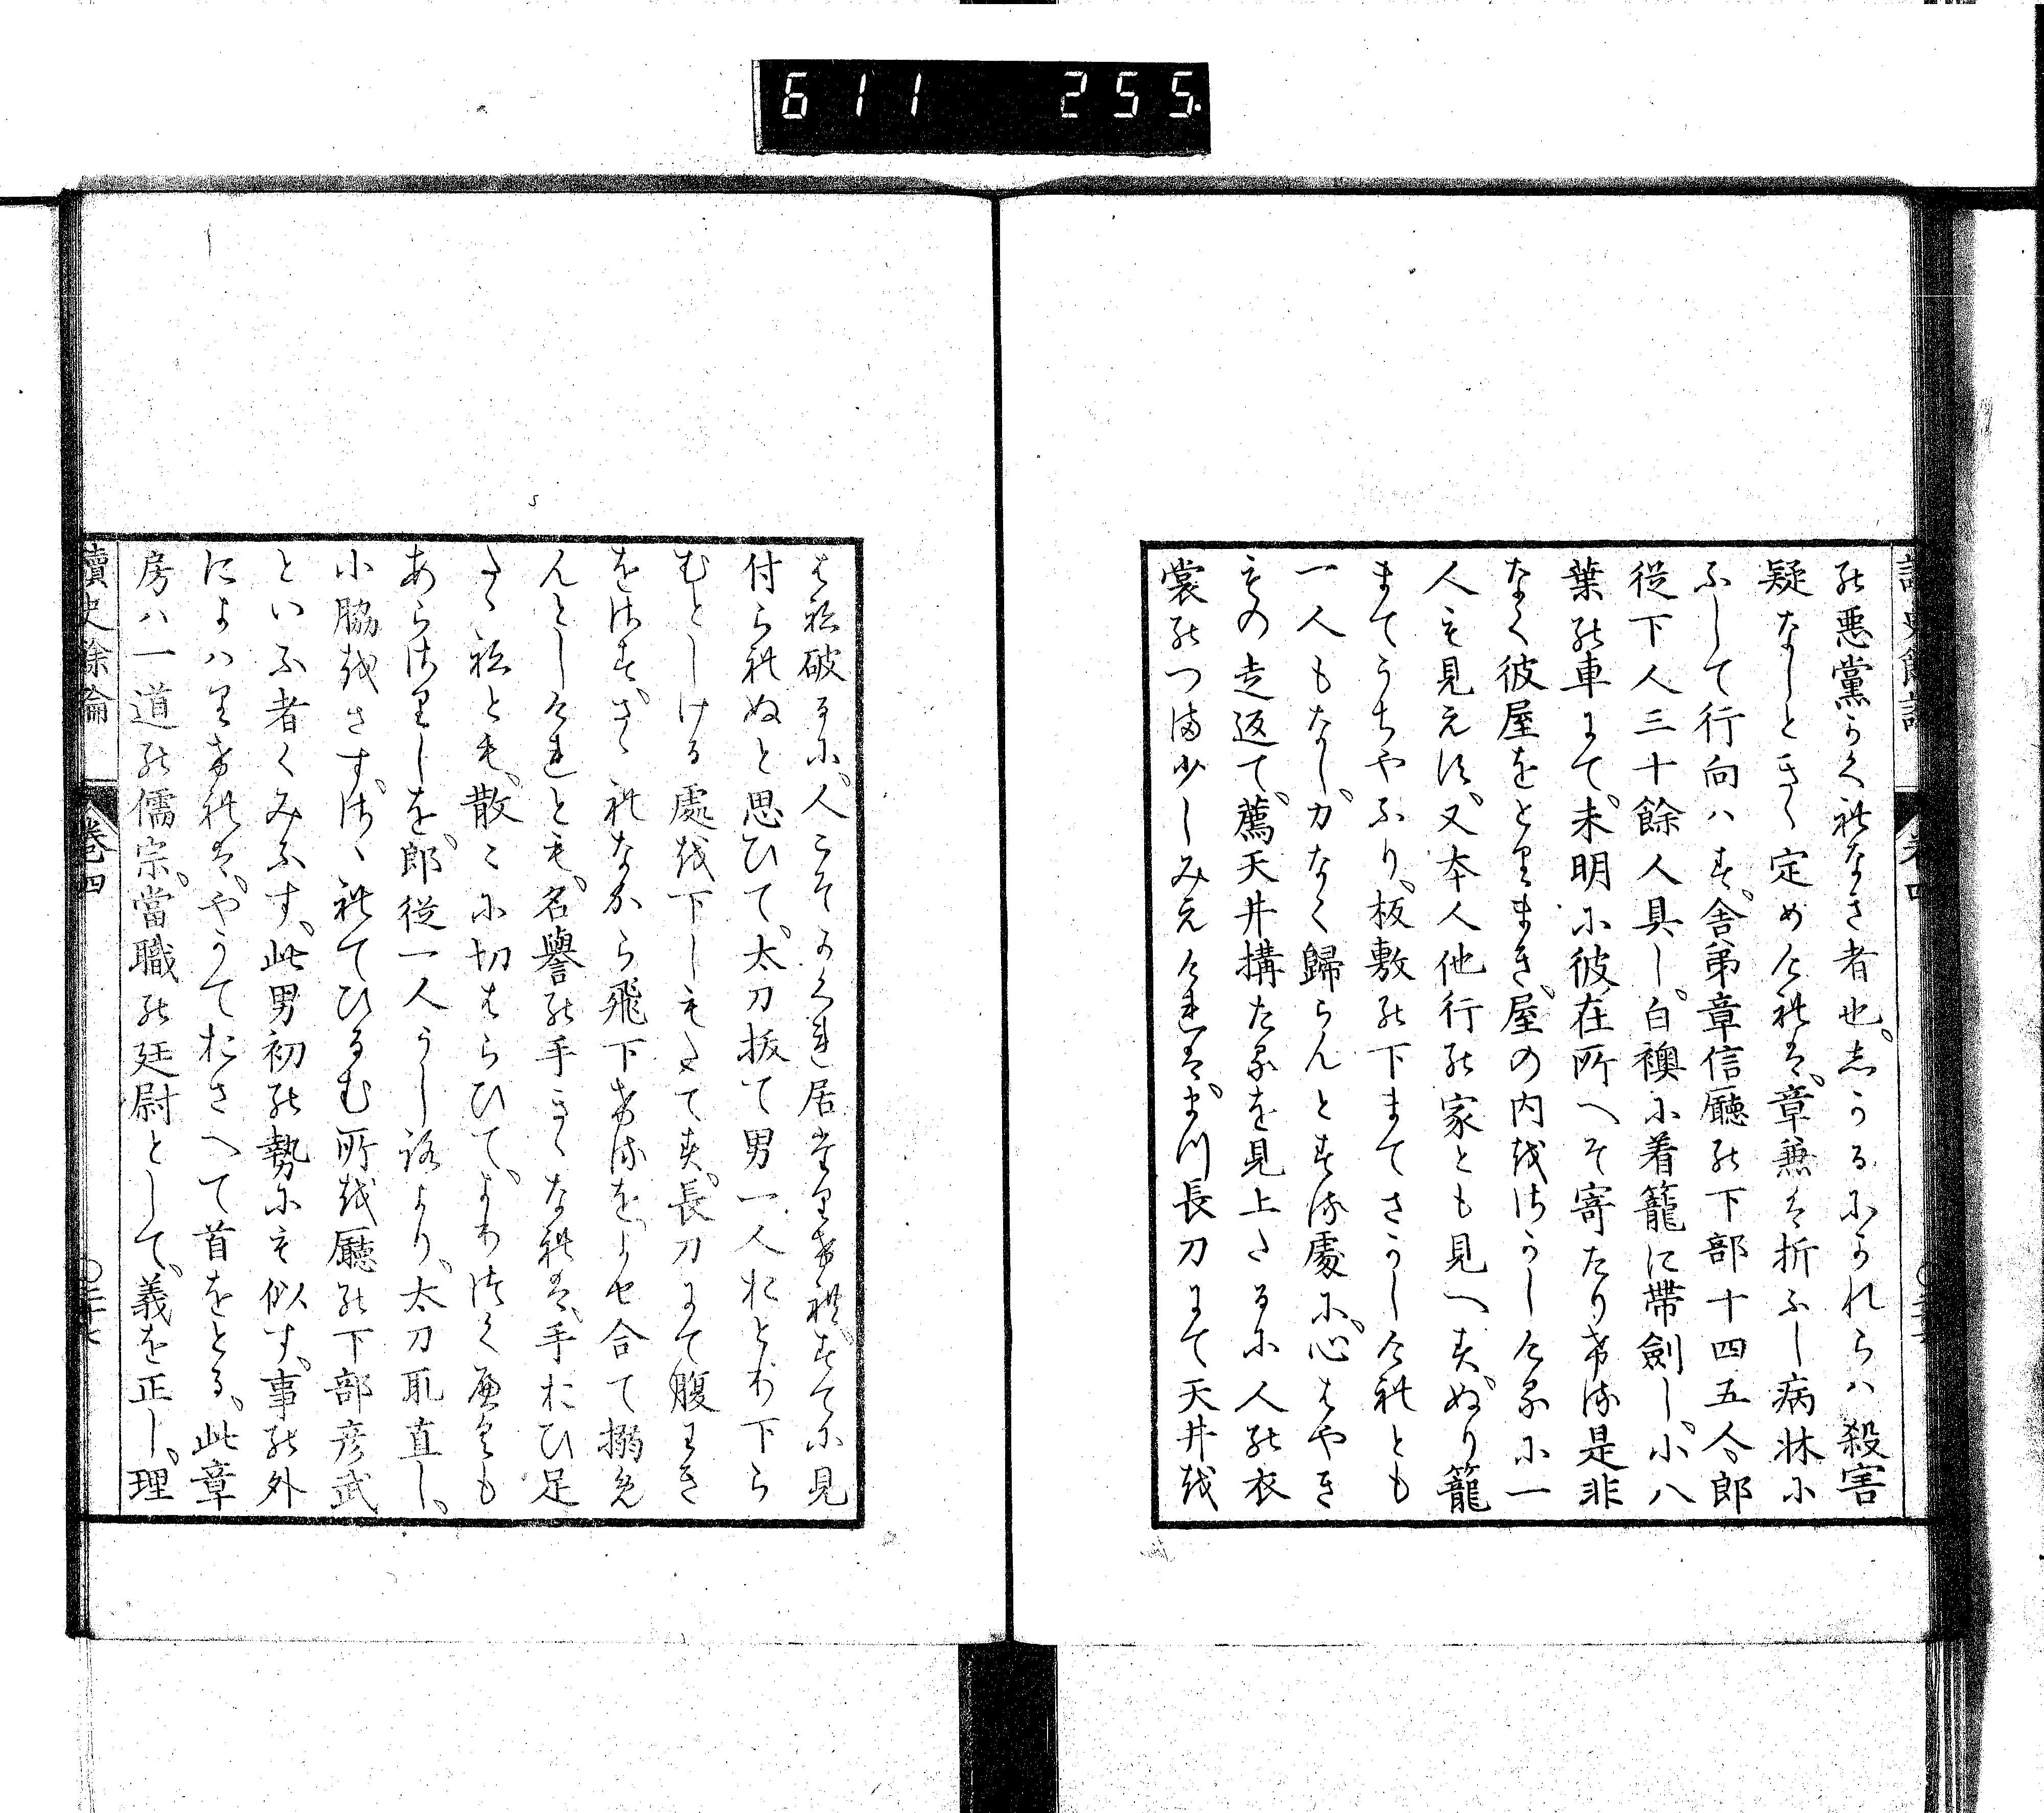 611 255.
の悪黨かくれなき者也。志かるにかれらハ殺害
疑なしときく定めけれは、章兼は折ふし病牀に
ふして行向ハす、舎弟章信廳の下部十四五人、郎
従下人三十餘人具し、白襖に着籠に帶劍し、小八
葉の車にて、未明に彼在所へそ寄たりける是非
なく彼屋をとりまき、屋の内をさかしけるに一
人も見えす、又本人他行の家とも見へす、ぬり籠
まてうちやふり、板敷の下まてさかしけれとも
一人もなし、力なく歸らんとする處に、心はやき
ものの走返て、薦天井搆たるを見上たるに人の衣
裳のつま少しみえけれは、まつ長刀にて天井を
はね破るに、人こそかくれ居たりけれ、すてに見
付られぬと思ひて、太刀抜て男一人おとり下ら
むとしける處を下しもたてす、長刀にて腹わき
をさす、さゝれなから飛下けるを、よせ合て搦め
んとしけれとも、名譽の手きゝなれは、手おひ足
たゝねとも、散々に切はらひて、よりつく處も
あらさりしを、郎従一人うしろより、太刀取直し、
小脇をさす、さゝれてひるむ所を廳の下部彦武
といふ者くみふす、此男初の勢にも似す、事の外
によハりけれは、やかておさへて首をとる、此章
房ハ一道の儒宗、當職の廷尉として、義を正し、理
讀史餘論 卷四